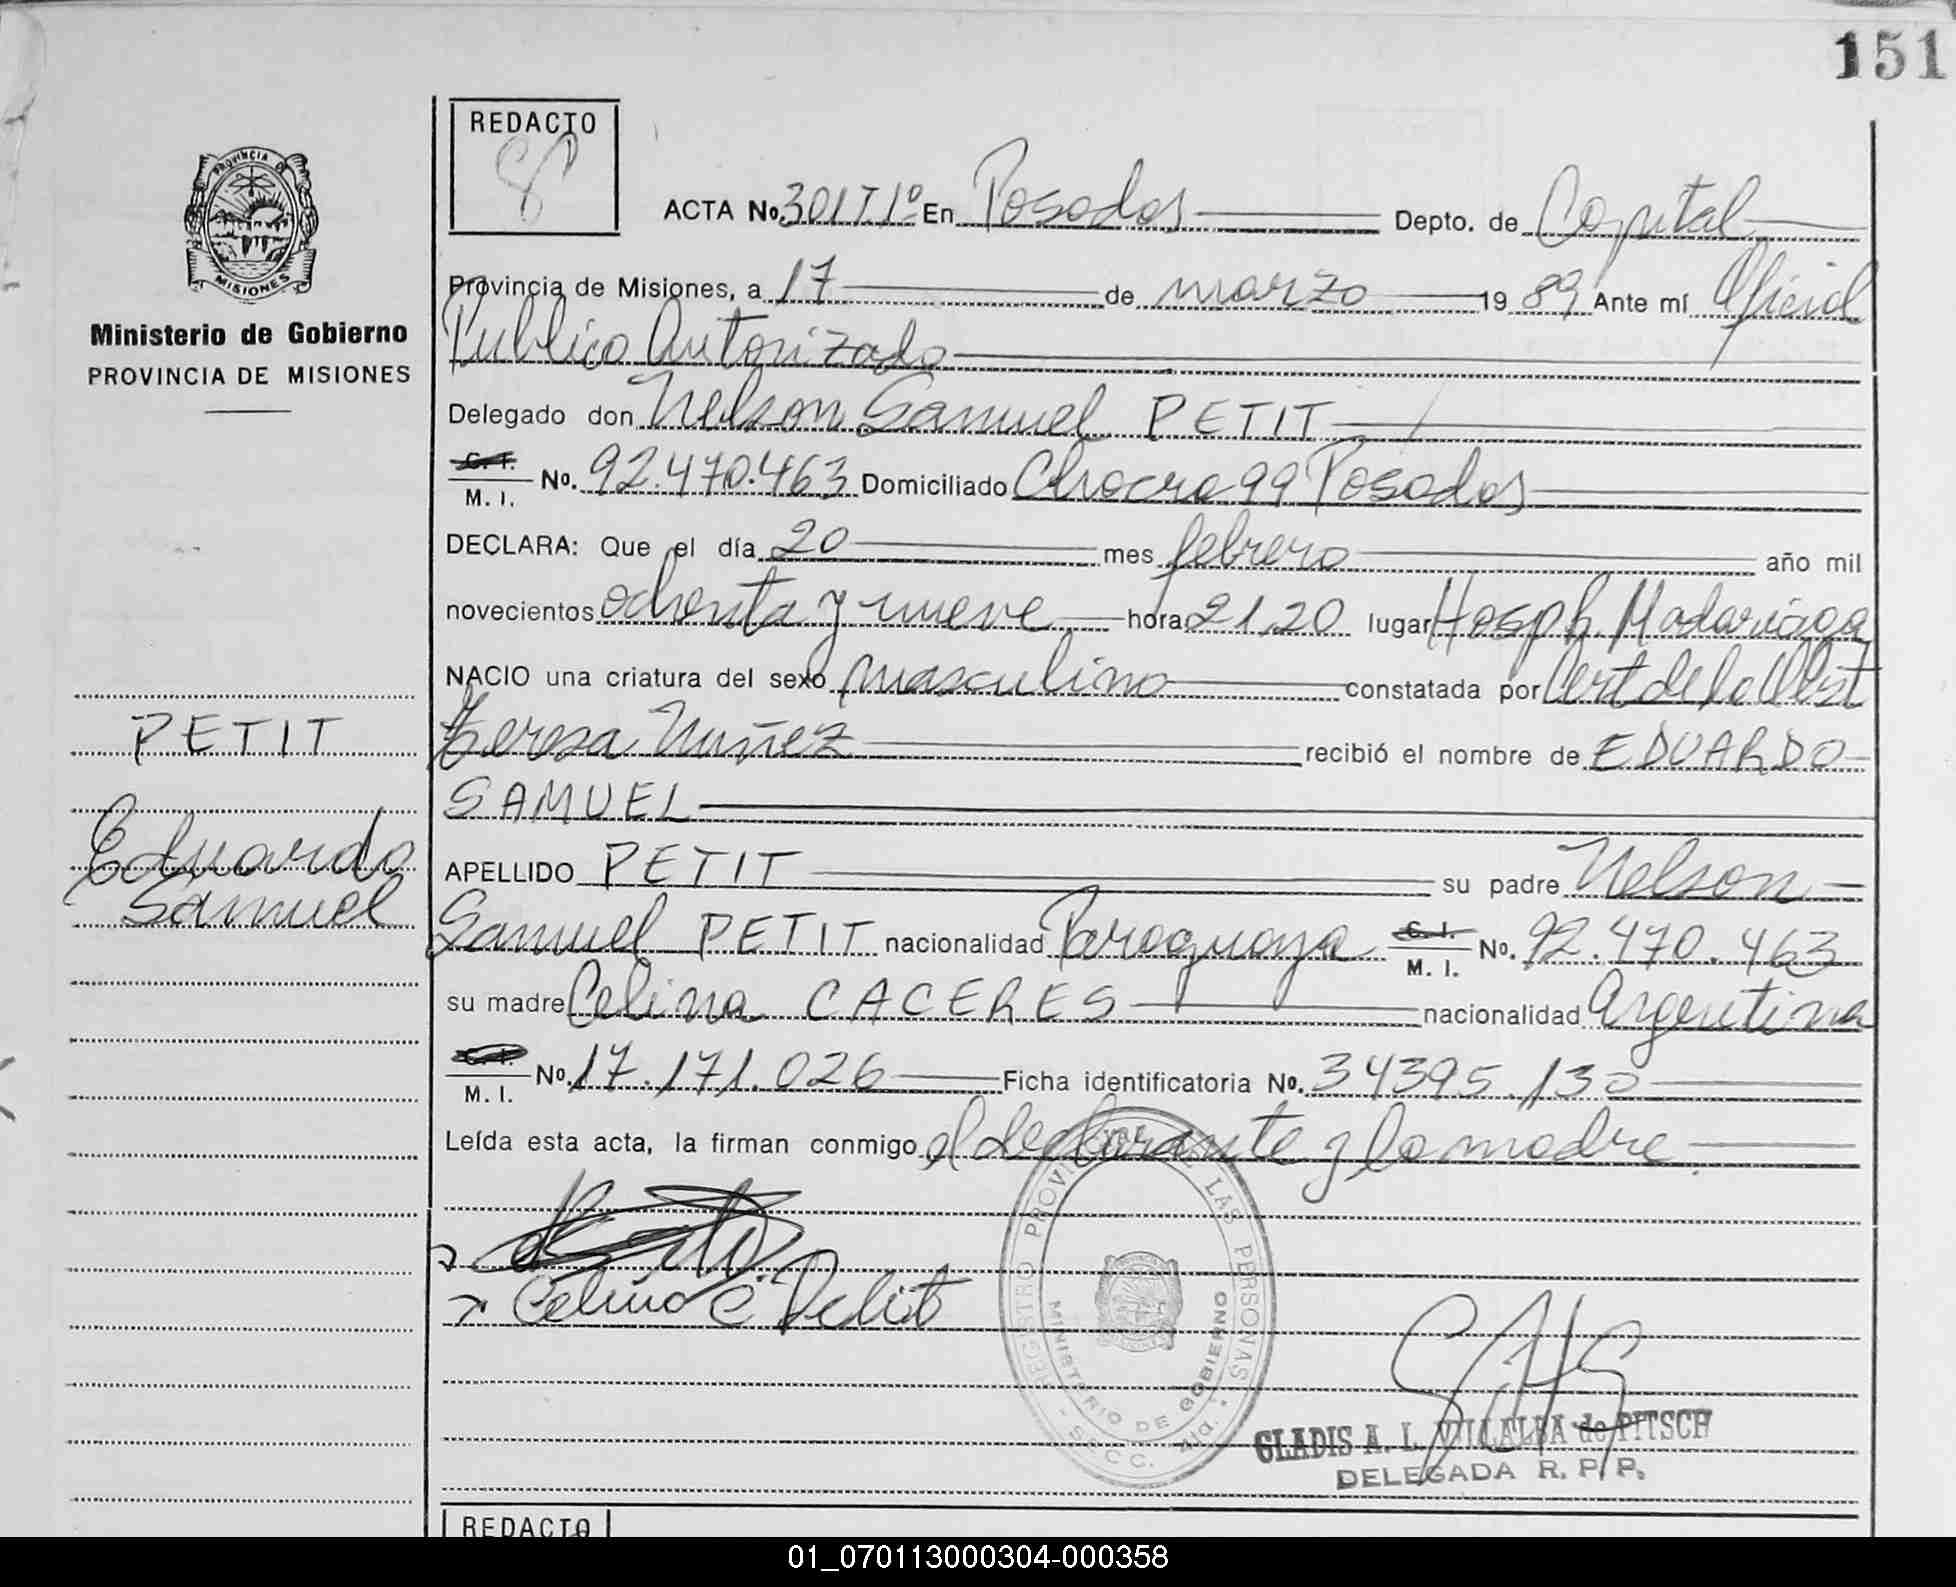 151
REDACTO
8
ACTA No. 301 T 1º En Posadas Depto. de Capital
PROVINCIA DE
MISIONES
Ministerio de Gobierno
PROVINCIA DE MISIONES
Provincia de Misiones, a 17 de marzo 19 89 Ante mí Oficial
Publico Autorizado
Delegado don Nelson Samuel PETIT
C. I.
M. I. No. 92.470.463 Domiciliado Chacra 99 Posadas
DECLARA: Que el día 20 mes febrero año mil
novecientos ochenta y nueve hora 21,20 lugar Hosp R. Madariaga
NACIO una criatura del sexo masculino constatada por Cert de la Obst
Teresa Nuñez recibió el nombre de EDUARDO
SAMUEL
PETIT
Eduardo
Samuel
APELLIDO PETIT su padre Nelson
Samuel PETIT nacionalidad Paraguaya C. I. M. I. No. 92.470.463
su madre Celina CACERES nacionalidad Argentina
C. I.
M. I. No. 17.171.026 Ficha identificatoria No. 34395/130
Leída esta acta, la firman conmigo el declarante y la madre.
Celina C. Petit
REGISTRO PROVINCIAL DE LAS PERSONAS
MINISTERIO DE GOBIERNO
GLADIS A. I. VILLALBA de PITSCH
DELEGADA R. P. P.
REDACTO
01_070113000304-000358